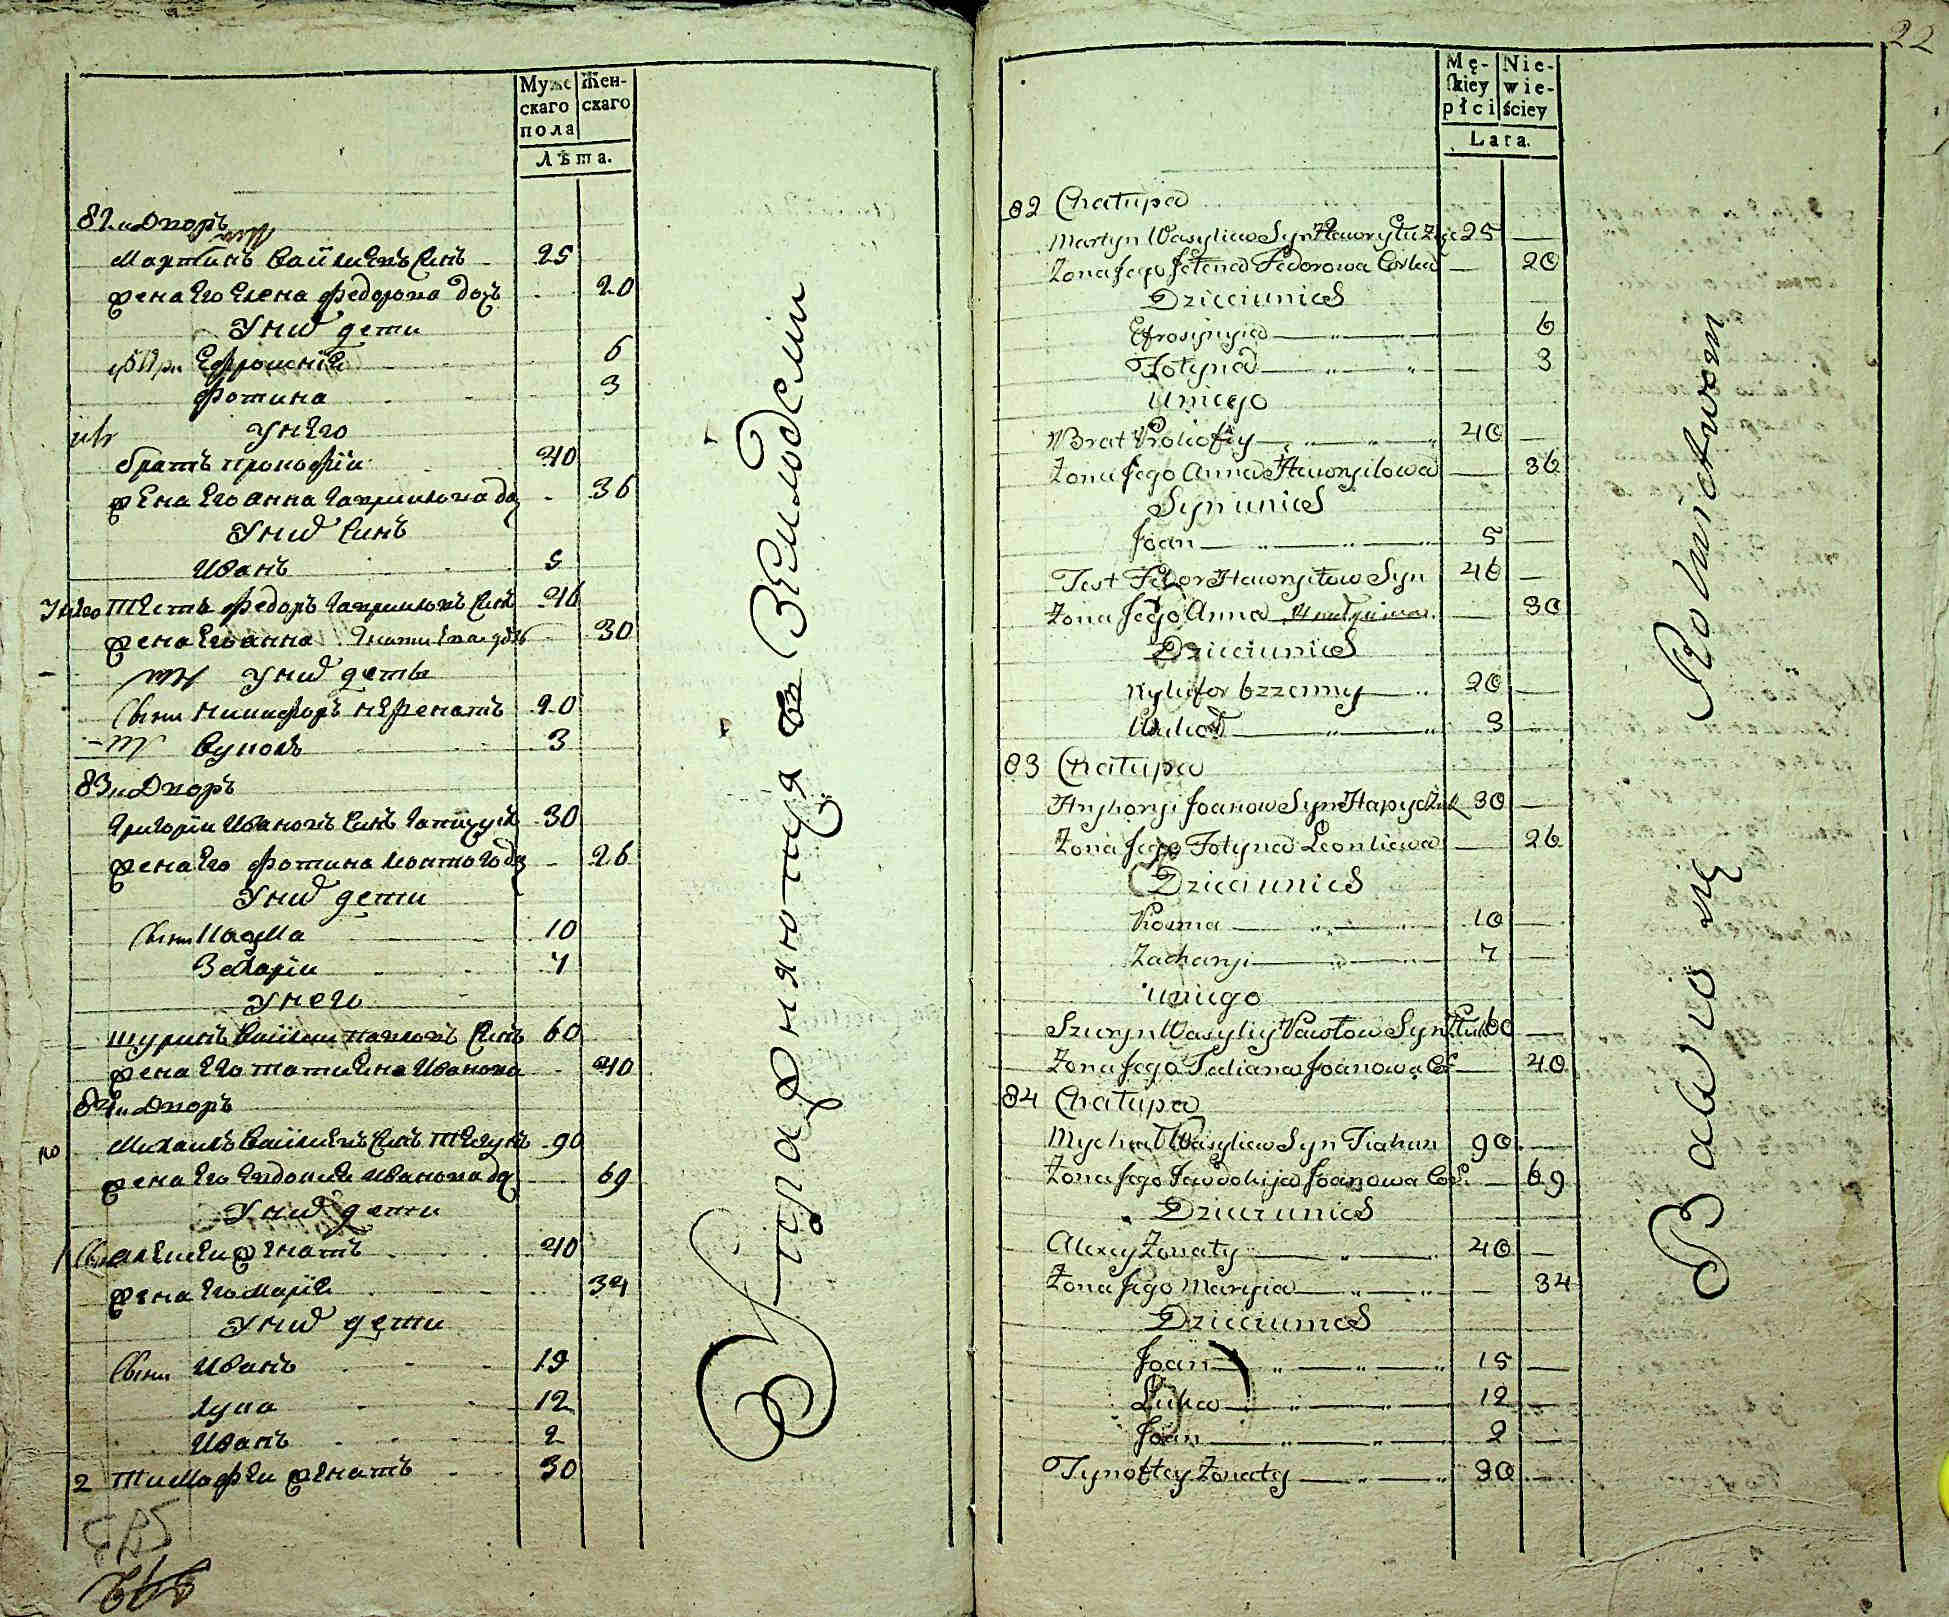 Муже
скаго
пола
Жен-
скаго
Лѣта.
82и Дворъ
Мартинъ Василіевъ Синъ 25
жена Его Елена Федорова дочъ 20
У нихъ дети
Ефросинія 6
Фотина 3
У нЕго
братъ Прокофій 40
жЕна Его Анна Гавриилова до 36
У нихъ Синъ
Иванъ 5
У нЕго тЕсть Федоръ Гавриловъ Синъ 46
жена Его Анна 30
У нихъ дети
Сыны Никифоръ нЕженатъ 20
Вуколъ 3
83и Дворъ
Григорій Ивановъ Синъ 30
жена Его Фотина Леонтіова до 26
У нихъ дети
Сыны Козма 10
Захарій 7
У него
Шуринъ Василій Павловъ Синъ 60
жена Его Татиана Иванова 40
84и Дворъ
Михаилъ Василіевъ Синъ 90
жена Его Евдокія Иванова до 69
У нихъ дети
1 Сынъ АлЕксЕй жЕнатъ 40
жена Его Марія 34
У нихъ дети
Сыны Иванъ 15
Лука 12
Иванъ 2
2 Тимофей жЕнатъ 30
Упражняются въ Земледелии
22
Mę-
skiey
płci
Nie-
wie-
ściey
Lata.
82 Chałupa
Martyn Wasyliew Syn 25 —
Żona Jego Jelena Fedorowa Corka — 20
Dzieci u nich
Efrosynyia — „ — 6
Fotyna — „ — „ — 3
u niego
Brat Prokofiy — „ — „ — 40 —
Żona Jego Anna Hawryiłowa — 36
Syn u nich
Joan — „ — „ — „ 5 —
Test Fedor Hawryiłow Syn 46 —
Żona Jego Anna — 30
Dzieci u nich
Nykifor bezżenny — „ 20 —
Wukoł — „ — „ 3 —
83 Chałupa
Hryhoryi Joanow Syn 30 —
Żona Jego Fotyna Leontiewa — 26
Dzieci u nich
Kozma — „ — „ 10 —
Zacharyi — „ — „ 7 —
u niego
Szuryn Wasyliy Pawłow Syn 60 —
Żona Jego Tatiana Joanowa Cor — 40
84 Chałupa
Mychał Wasyliew Syn 90 —
Żona Jego Jewdokija Joanowa Cor. — 69
Dzieci u nich
Alexey Żonaty — „ — 40 —
Żona Jego Maryia — „ — „ — 34
Dzieci u nich
Joan — „ — „ — „ 15 —
Luka — „ — „ — 12 —
Joan — „ — „ — 2 —
Tymoftey Żonaty — „ — „ 30 —
Bawio się Rolnictwem